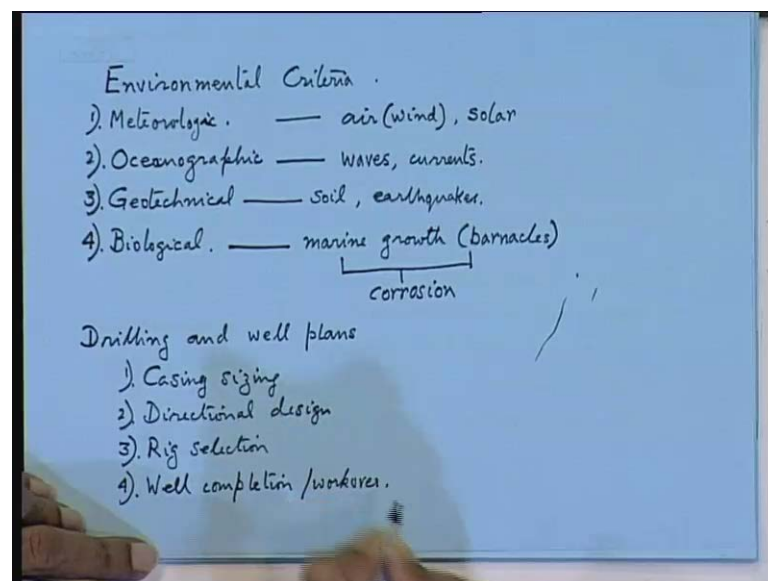 Environmental Criteria.
1). Meteorologic. — air (wind), solar
2). Oceanographic — waves, currents.
3). Geotechnical — soil, earthquakes.
4). Biological. — marine growth (barnacles)
corrosion
Drilling and well plans
1). Casing sizing
2). Directional design
3). Rig selection
4). Well completion/workover.